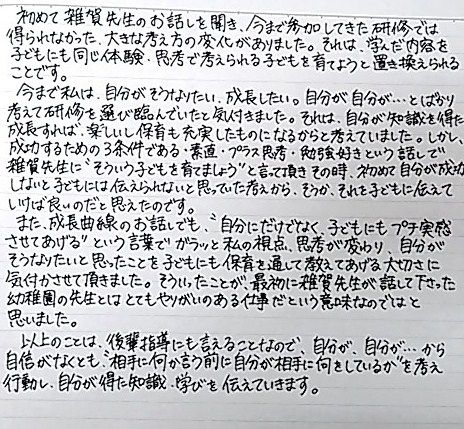 初めて雑賀先生のお話しを聞き、今まで参加してきた研修では
得られなかった、大きな考え方の変化がありました。それは、学んだ内容を
子どもにも同じ体験・思考で考えられる子どもを育てようと置き換えられる
ことです。
今まで私は、自分がそうなりたい、成長したい。自分が自分が…とばかり
考えて研修を選び臨んでいたと気付きました。それは、自分が知識を得た
成長すれば、楽しいし保育も充実したものになるからと考えていました。しかし、
成功するための3条件である・素直・プラス思考・勉強好きという話しで
雑賀先生に"そういう子どもを育てましょう"と言って頂きその時、初めて自分が成功
しないと子どもには伝えられないと思っていた考えから、そうか、それを子どもに伝えて
いけば良いのだと思えたのです。
また、成長曲線のお話でも、"自分にだけでなく、子どもにもプチ実感
させてあげる"という言葉でガラッと私の視点、思考が変わり、自分が
そうなりたいと思ったことを子どもにも保育を通して教えてあげる大切さに
気付かせて頂きました。そういったことが、最初に雑賀先生が話して下さった
幼稚園の先生とはとてもやりがいのある仕事だという意味なのではと
思いました。
以上のことは、後輩指導にも言えることなので、自分が、自分が…から
自信がなくとも、"相手に何か言う前に自分が相手に何をしているか"を考え
行動し、自分が得た知識・学びを伝えていきます。